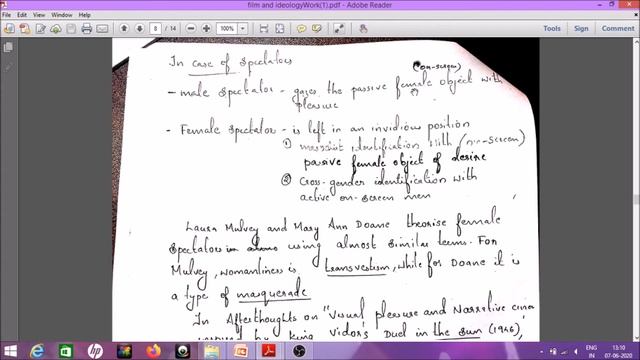 film and ideologyWork(1).pdf - Adobe Reader
8 / 14
100%
Tools
Sign
Comment
In case of spectators
(on-screen)
- male spectator - gazes the passive female object with
pleasure
- Female spectator - is left in an invidious position
① masochist identification with (on-screen)
passive female object of desire
② cross-gender identification with
active on-screen men
Laura Mulvey and Mary Ann Doane theorise female
spectators using almost similar terms. For
Mulvey, womanliness is transvestism, while for Doane it is
a type of masquerade
In Afterthoughts on "Visual pleasure and Narrative cine
inspired by King Vidor's Duel in the Sun (1946)
ENG
IN
13:10
07-06-2020